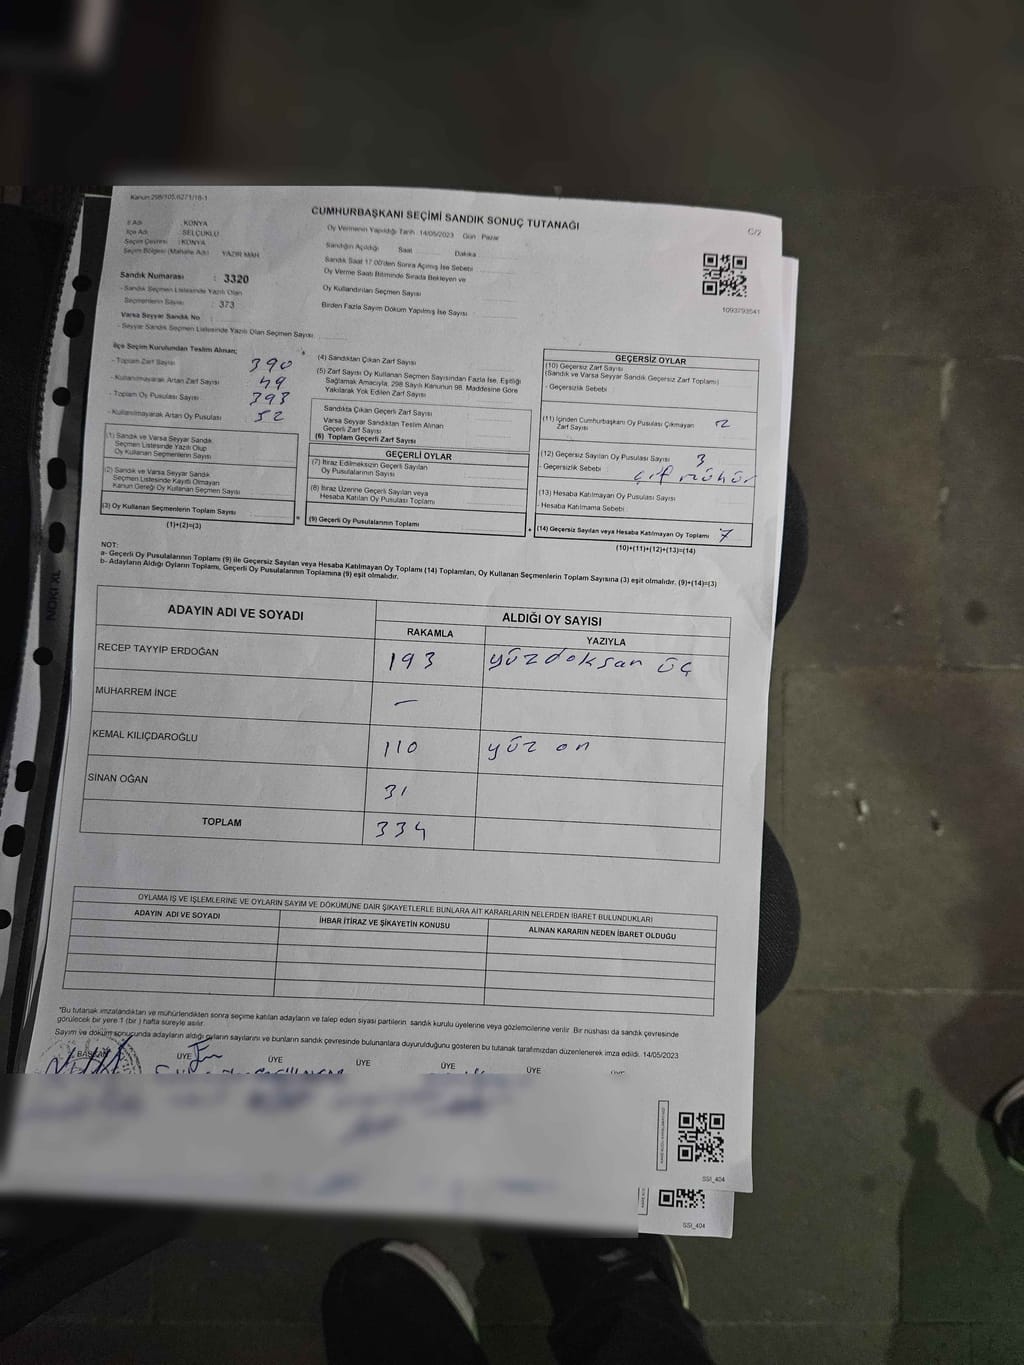 Kanun 298/105,6271/18-1
CUMHURBAŞKANI SEÇİMİ SANDIK SONUÇ TUTANAĞI
C/2
İl Adı : KONYA
İlçe Adı : SELÇUKLU
Seçim Çevresi : KONYA
Seçim Bölgesi (Mahalle Adı) YAZIR MAH.
Oy Vermenin Yapıldığı Tarih : 14/05/2023 Gün Pazar
Sandığın Açıldığı Saat Dakika
Sandık Saat 17.00'den Sonra Açılmış İse Sebebi
Oy Verme Saati Bitiminde Sırada Bekleyen ve
Oy Kullandırılan Seçmen Sayısı
Birden Fazla Sayım Döküm Yapılmış İse Sayısı
1093793541
Sandık Numarası : 3320
- Sandık Seçmen Listesinde Yazılı Olan
Seçmenlerin Sayısı : 373
Varsa Seyyar Sandık No
- Seyyar Sandık Seçmen Listesinde Yazılı Olan Seçmen Sayısı
İlçe Seçim Kurulundan Teslim Alınan;
- Toplam Zarf Sayısı 390
- Kullanılmayarak Artan Zarf Sayısı 49
- Toplam Oy Pusulası Sayısı 393
- Kullanılmayarak Artan Oy Pusulası 52
(1) Sandık ve Varsa Seyyar Sandık
Seçmen Listesinde Yazılı Olup
Oy Kullanan Seçmenlerin Sayısı
(2) Sandık ve Varsa Seyyar Sandık
Seçmen Listesinde Kayıtlı Olmayan
Kanun Gereği Oy Kullanan Seçmen Sayısı
(3) Oy Kullanan Seçmenlerin Toplam Sayısı
(1)+(2)=(3)
(4) Sandıktan Çıkan Zarf Sayısı
(5) Zarf Sayısı Oy Kullanan Seçmen Sayısından Fazla İse, Eşitliği
Sağlamak Amacıyla, 298 Sayılı Kanunun 98. Maddesine Göre
Yakılarak Yok Edilen Zarf Sayısı
Sandıkta Çıkan Geçerli Zarf Sayısı
Varsa Seyyar Sandıktan Teslim Alınan
Geçerli Zarf Sayısı
(6) Toplam Geçerli Zarf Sayısı
GEÇERLİ OYLAR
(7) İtiraz Edilmeksizin Geçerli Sayılan
Oy Pusulalarının Sayısı
(8) İtiraz Üzerine Geçerli Sayılan veya
Hesaba Katılan Oy Pusulası Toplamı
=
(9) Geçerli Oy Pusulalarının Toplamı
+
GEÇERSİZ OYLAR
(10) Geçersiz Zarf Sayısı
(Sandık ve Varsa Seyyar Sandık Geçersiz Zarf Toplamı)
- Geçersizlik Sebebi
(11) İçinden Cumhurbaşkanı Oy Pusulası Çıkmayan
Zarf Sayısı
(12) Geçersiz Sayılan Oy Pusulası Sayısı 3
- Geçersizlik Sebebi : çift mühür
(13) Hesaba Katılmayan Oy Pusulası Sayısı
- Hesaba Katılmama Sebebi
(14) Geçersiz Sayılan veya Hesaba Katılmayan Oy Toplamı 7
(10)+(11)+(12)+(13)=(14)
NOT:
a- Geçerli Oy Pusulalarının Toplamı (9) ile Geçersiz Sayılan veya Hesaba Katılmayan Oy Toplamı (14) Toplamları, Oy Kullanan Seçmenlerin Toplam Sayısına (3) eşit olmalıdır. (9)+(14)=(3)
b- Adayların Aldığı Oyların Toplamı, Geçerli Oy Pusulalarının Toplamına (9) eşit olmalıdır.
ADAYIN ADI VE SOYADI
ALDIĞI OY SAYISI
RAKAMLA YAZIYLA
RECEP TAYYİP ERDOĞAN 193 yüzdoksan üç
MUHARREM İNCE –
KEMAL KILIÇDAROĞLU 110 yüz on
SİNAN OĞAN 31
TOPLAM 334
OYLAMA İŞ VE İŞLEMLERİNE VE OYLARIN SAYIM VE DÖKÜMÜNE DAİR ŞİKAYETLERLE BUNLARA AİT KARARLARIN NELERDEN İBARET BULUNDUKLARI
ADAYIN ADI VE SOYADI İHBAR İTİRAZ VE ŞİKAYETİN KONUSU ALINAN KARARIN NEDEN İBARET OLDUĞU
*Bu tutanak imzalandıktan ve mühürlendikten sonra seçime katılan adayların ve talep eden siyasi partilerin sandık kurulu üyelerine veya gözlemcilerine verilir. Bir nüshası da sandık çevresinde
görülecek bir yere 1 (bir ) hafta süreyle asılır.
Sayım ve döküm sonucunda adayların aldığı oyların sayılarını ve bunların sandık çevresinde bulunanlara duyurulduğunu gösteren bu tutanak tarafımızdan düzenlenerek imza edildi. 14/05/2023
BAŞKAN ÜYE ÜYE ÜYE ÜYE ÜYE ÜYE
SSI_404
SSI_404
NOKI XL